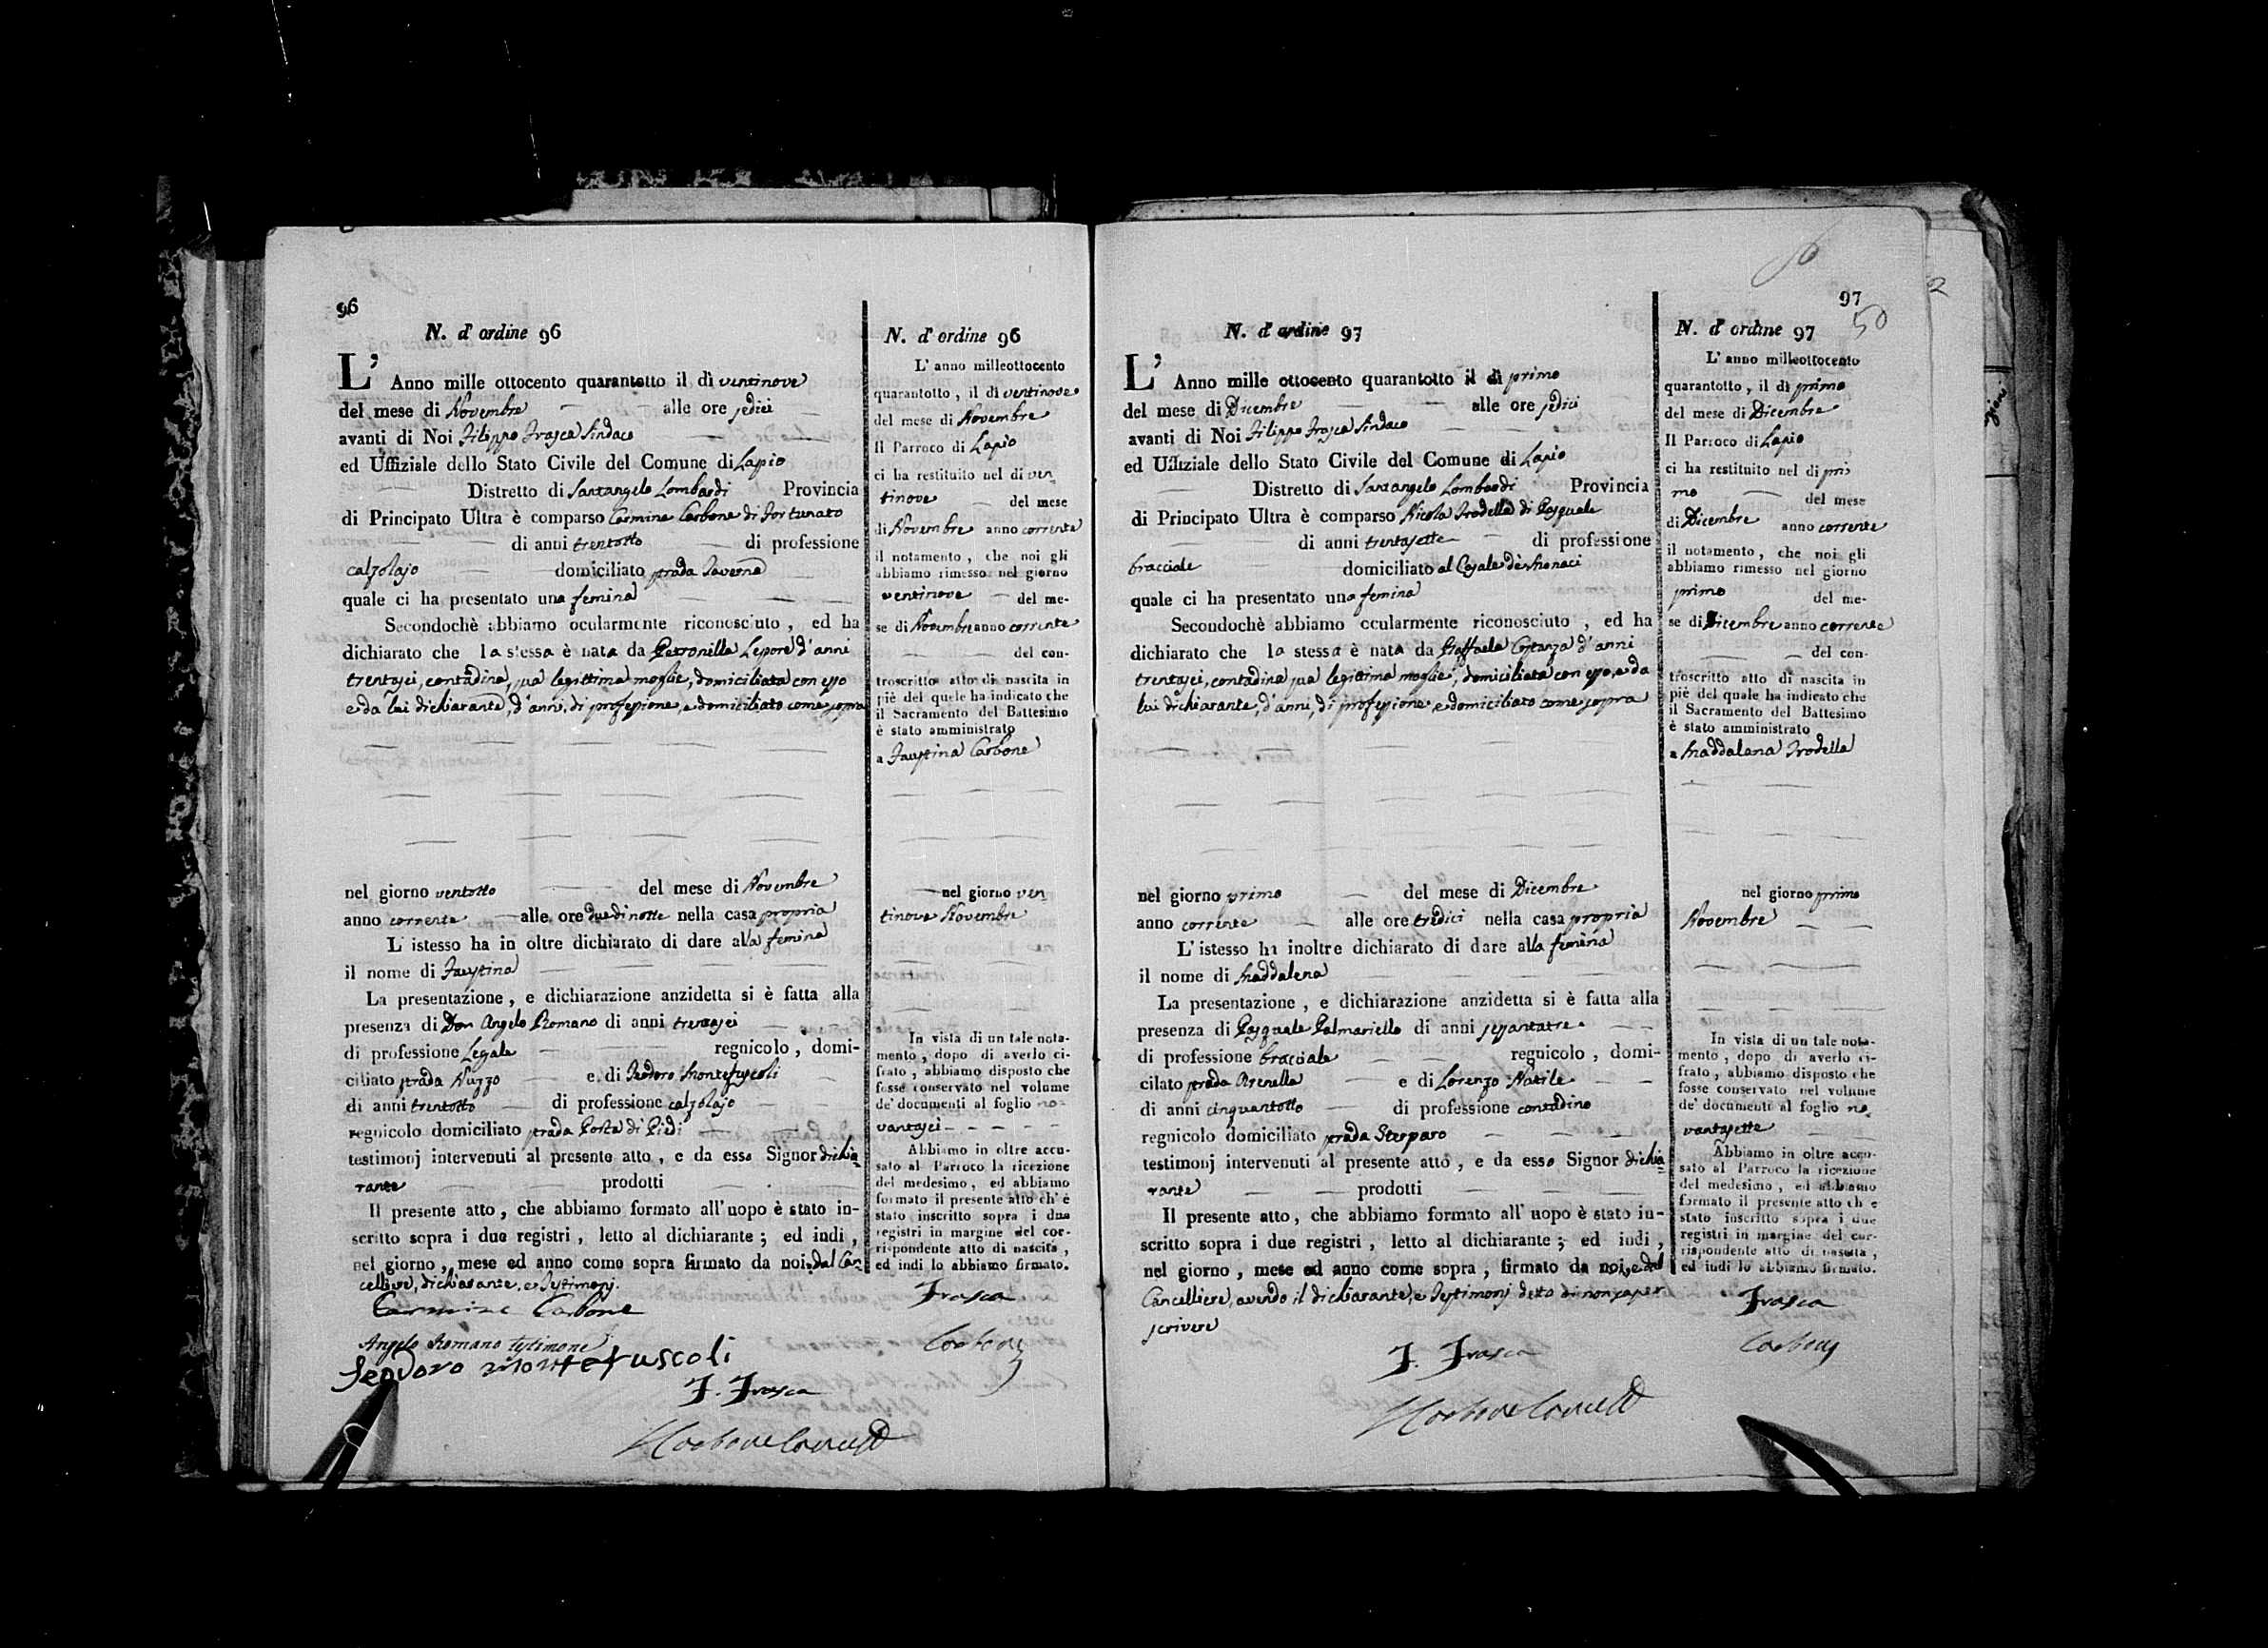 96
N. d' ordine 96
L' Anno mille ottocento quarantotto il dì ventinove
del mese di Novembre alle ore sedici
avanti di Noi Filippo Frasca Sindaco
ed Uffiziale dello Stato Civile del Comune di Lapio
Distretto di Santangelo Lombardi Provincia
di Principato Ultra è comparso Carmine Carbone di Fortunato
di anni trentotto di professione
calzolajo domiciliato strada Taverna
quale ci ha presentato una femina
Secondochè abbiamo ocularmente riconosciuto, ed ha
dichiarato che la stessa è nata da Petronilla Lepore d'anni
trentasei, contadina, sua legittima moglie, domiciliata con esso
e da lui dichiarante, d'anni, di professione, e domiciliato come sopra
nel giorno ventotto del mese di Novembre
anno corrente alle ore due di notte nella casa propria
L' istesso ha in oltre dichiarato di dare alla femina
il nome di Faustina
La presentazione, e dichiarazione anzidetta si è fatta alla
presenza di Don Angelo Romano di anni trentasei
di professione Legale regnicolo, domi-
ciliato strada Nuzzo e di Teodoro Montefuscoli
di anni trentotto di professione calzolajo
regnicolo domiciliato strada Porta di Piedi
testimonj intervenuti al presente atto, e da esso Signor dichia-
rante prodotti
Il presente atto, che abbiamo formato all'uopo è stato in-
scritto sopra i due registri, letto al dichiarante; ed indi,
nel giorno, mese ed anno come sopra firmato da noi, dal Can-
celliere, dichiarante, e Testimonj.
Carmine Carbone
Angelo Romano testimone
Teodoro Montefuscoli
F. Frasca
N. d' ordine 96
L' anno milleottocento
quarantotto, il dì ventinove
del mese di Novembre
Il Parroco di Lapio
ci ha restituito nel dì ven-
tinove del mese
di Novembre anno corrente
il notamento, che noi gli
abbiamo rimesso nel giorno
ventinove del me-
se di Novembre anno corrente
del con-
troscritto atto di nascita in
piè del quale ha indicato che
il Sacramento del Battesimo
è stato amministrato
a Faustina Carbone
nel giorno ven
tinove Novembre
In vista di un tale nota-
mento, dopo di averlo ci-
frato, abbiamo disposto che
fosse conservato nel volume
de' documenti al foglio no-
vantasei
Abbiamo in oltre accu-
sato al Parroco la ricezione
del medesimo, ed abbiamo
formato il presente atto ch' è
stato inscritto sopra i due
registri in margine del cor-
rispondente atto di nascita,
ed indi lo abbiamo firmato.
Frasca
97
50
N. d' ordine 97
L' Anno mille ottocento quarantotto il dì primo
del mese di Dicembre alle ore sedici
avanti di Noi Filippo Frasca Sindaco
ed Uffiziale dello Stato Civile del Comune di Lapio
Distretto di Santangelo Lombardi Provincia
di Principato Ultra è comparso Nicola Trodella di Pasquale
di anni trentasette di professione
bracciale domiciliato al Casale de' Monaci
quale ci ha presentato una femina
Secondochè abbiamo ocularmente riconosciuto, ed ha
dichiarato che la stessa è nata da Raffaela Costanza d'anni
trentasei, contadina sua legittima moglie, domiciliata con esso, e da
lui dichiarante, d'anni, di professione, e domiciliato come sopra
nel giorno primo del mese di Dicembre
anno corrente alle ore tredici nella casa propria
L' istesso ha inoltre dichiarato di dare alla femina
il nome di Maddalena
La presentazione, e dichiarazione anzidetta si è fatta alla
presenza di Pasquale Palmariello di anni sessantatre
di professione bracciale regnicolo, domi-
cilato strada Arenella e di Lorenzo Natile
di anni cinquantotto di professione contadino
regnicolo domiciliato strada Sterparo
testimonj intervenuti al presente atto, e da esso Signor dichia-
rante prodotti
Il presente atto, che abbiamo formato all' uopo è stato in-
scritto sopra i due registri, letto al dichiarante; ed indi,
nel giorno, mese ed anno come sopra, firmato da noi, e dal
Cancelliere, avendo il dichiarante, e Testimonj detto di non saper
scrivere
F. Frasca
N. d' ordine 97
L' anno milleottocento
quarantotto, il dì primo
del mese di Dicembre
Il Parroco di Lapio
ci ha restituito nel dì pri-
mo del mese
di Dicembre anno corrente
il notamento, che noi gli
abbiamo rimesso nel giorno
primo del me-
se di Dicembre anno corrente
del con-
troscritto atto di nascita in
piè del quale ha indicato che
il Sacramento del Battesimo
è stato amministrato
a Maddalena Trodella
nel giorno primo
Novembre
In vista di un tale nota-
mento, dopo di averlo ci-
frato, abbiamo disposto che
fosse conservato nel volume
de' documenti al foglio no-
vantasette
Abbiamo in oltre accu-
sato al Parroco la ricezione
del medesimo, ed abbiamo
formato il presente atto ch' è
stato inscritto sopra i due
registri in margine del cor-
rispondente atto di nascita,
ed indi lo abbiamo firmato.
Frasca